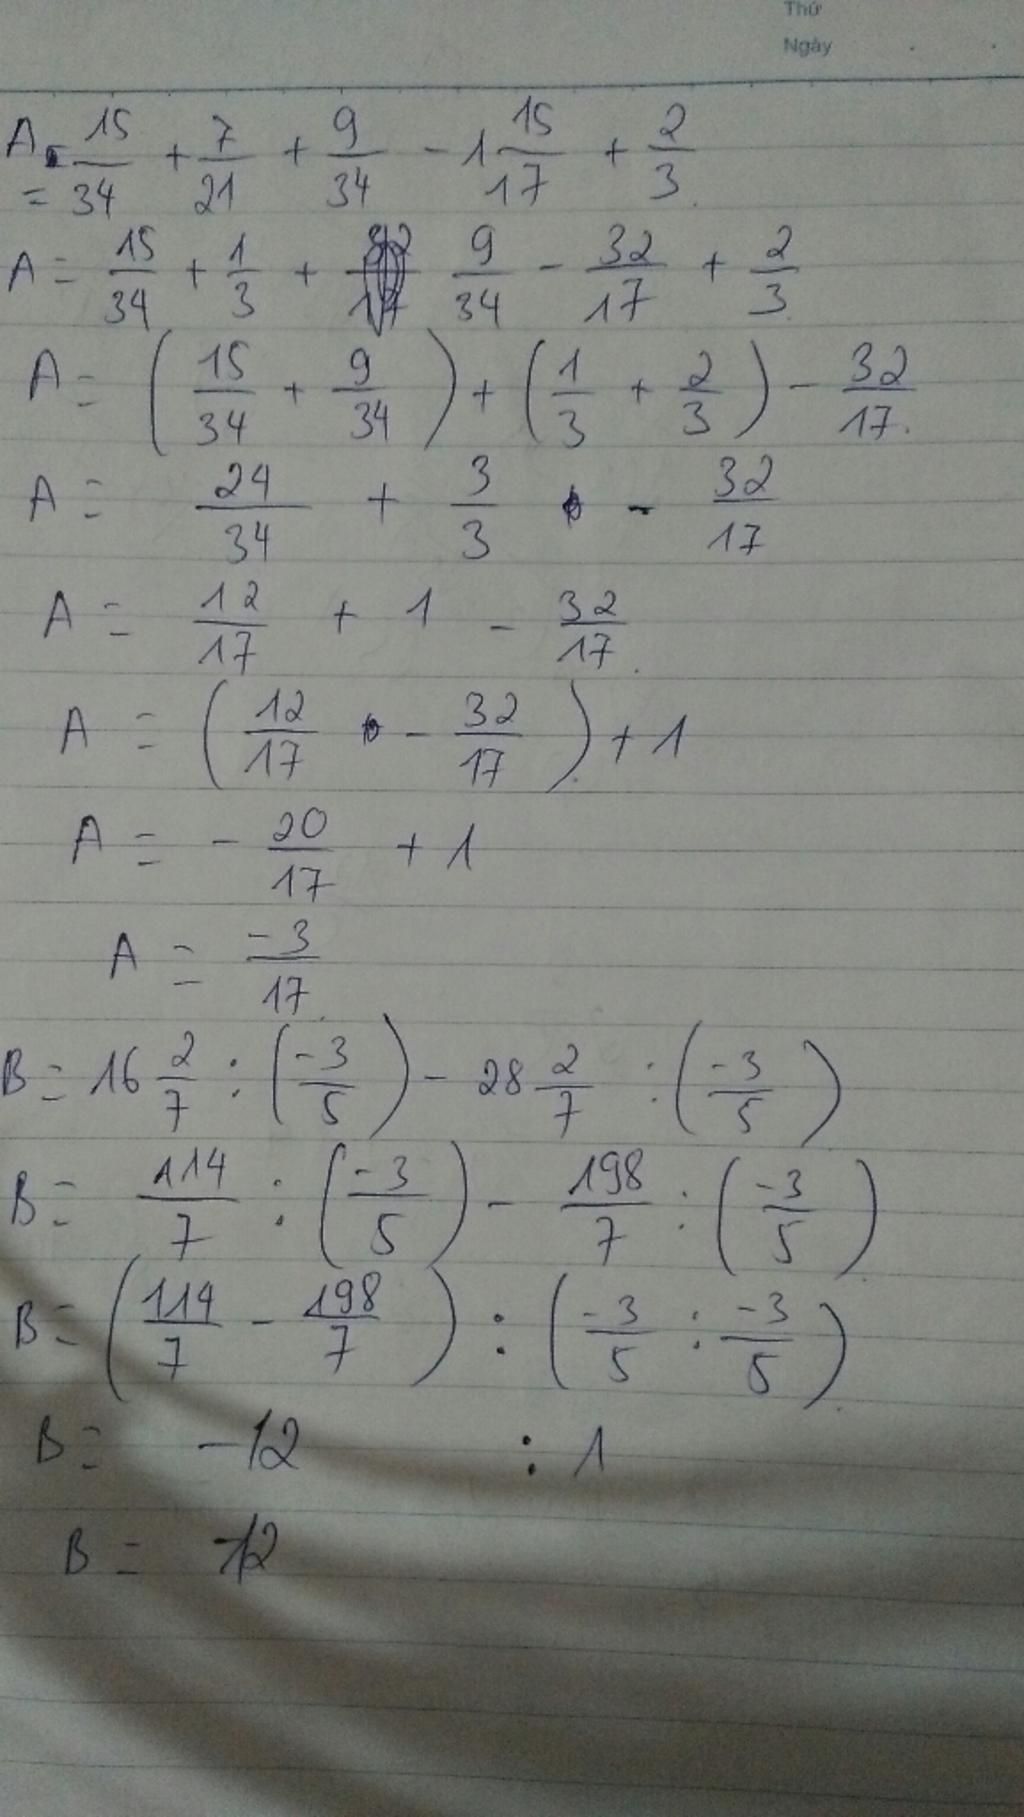 Thứ
Ngày
A = 15/34 + 7/21 + 9/34 - 1 15/17 + 2/3
A = 15/34 + 1/3 + 9/34 - 32/17 + 2/3
A = (15/34 + 9/34) + (1/3 + 2/3) - 32/17.
A = 24/34 + 3/3 - 32/17
A = 12/17 + 1 - 32/17.
A = (12/17 - 32/17) + 1
A = - 20/17 + 1
A = -3/17
B = 16 2/7 : (-3/5) - 28 2/7 : (-3/5)
B = 114/7 : (-3/5) - 198/7 : (-3/5)
B = (114/7 - 198/7) : (-3/5 : -3/5)
B = -12 : 1
B = -12